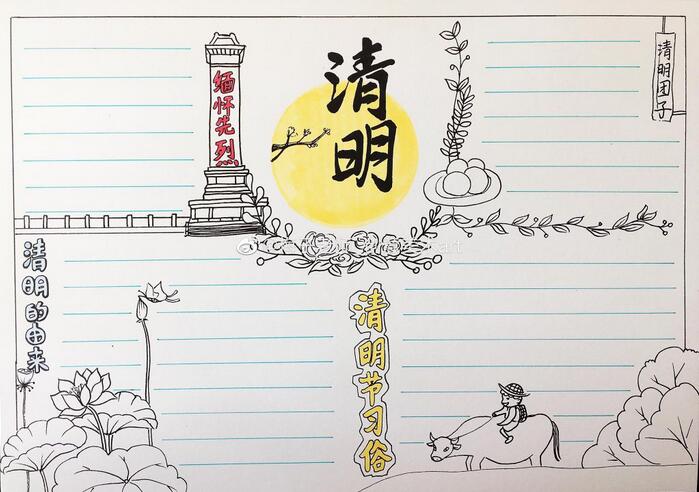 缅怀先烈
清明
清明团子
清明的由来
清明节习俗